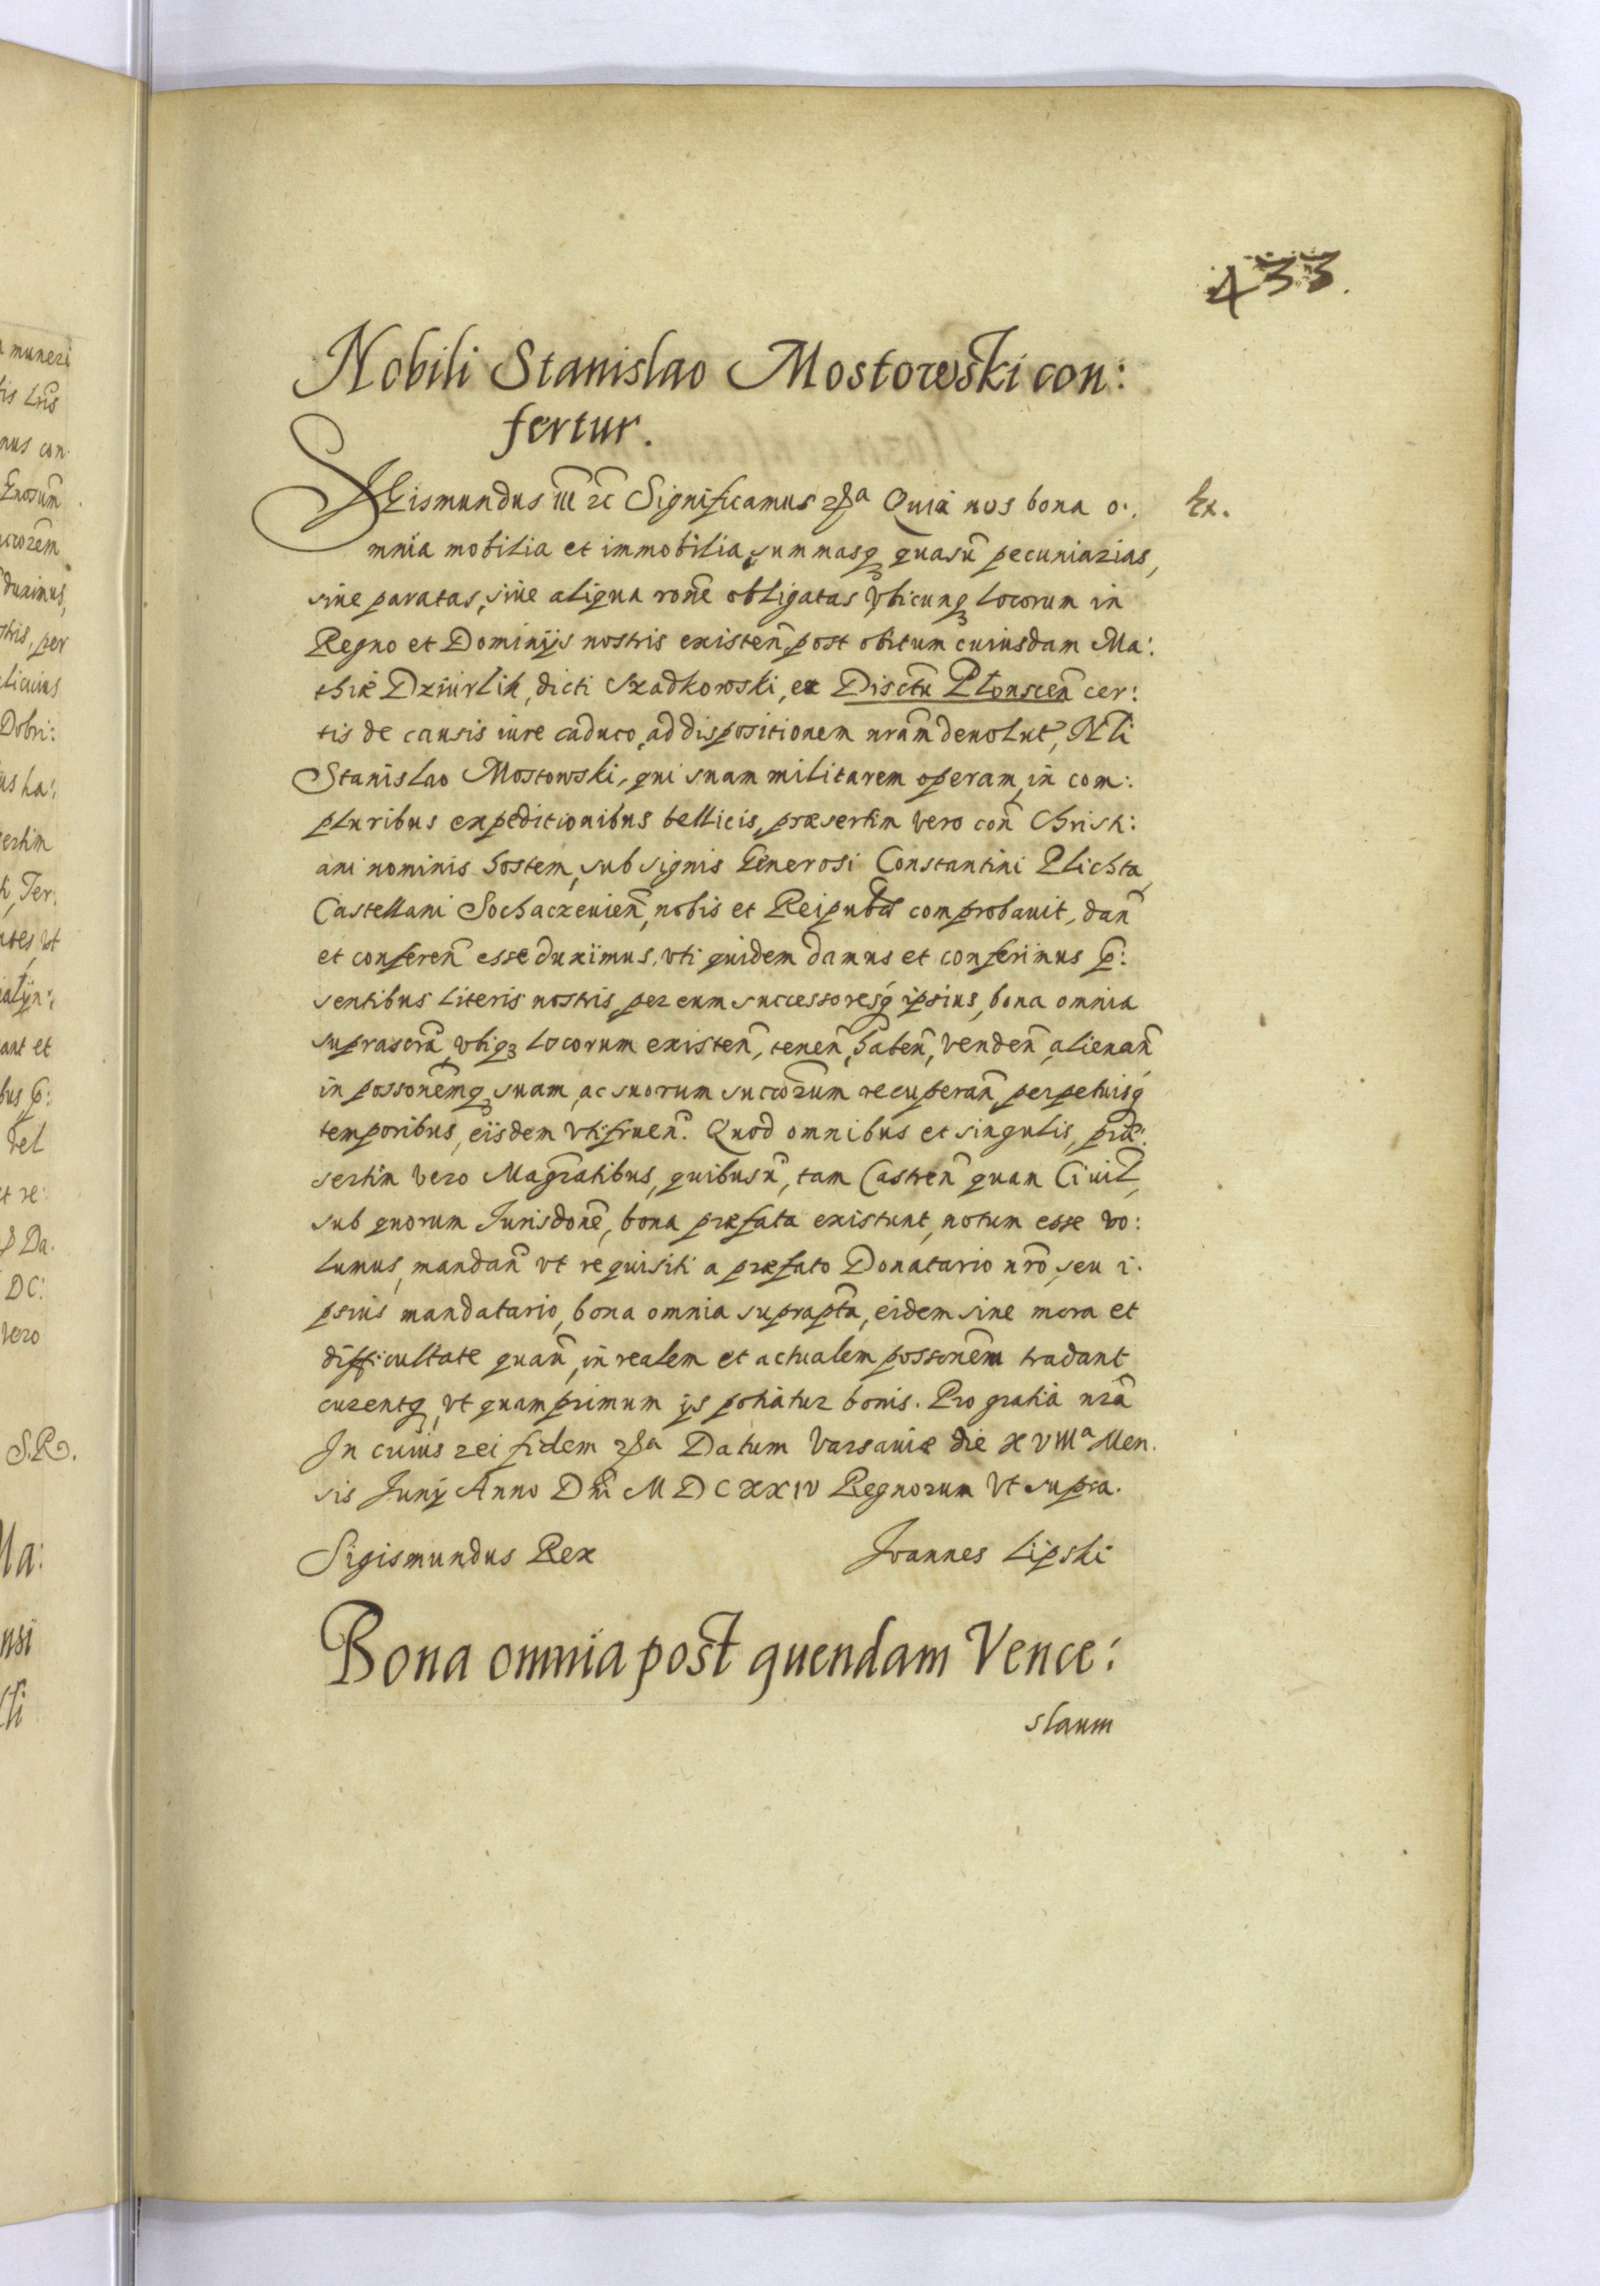 433.
Nobili Stanislao Mostowski con:
fertur.
SIGismundus III etc Significamus Quia nos bona o:
Ex.
mnia mobilia et immobilia, summasq quasũ pecuniarias,
siue paratas, siue aliqua rone obligatas vbicunq locorum in
Regno et Dominijs nostris existeñ, post obitum cuiusdam Ma:
thiæ Dziurlik, dicti Szadkowski, ex Disctũ Plonsceñ cer:
tis de causis iure caduco, ad dispositionem nrãm deuolut, Nli
Stanislao Mostowski, qui suam militarem operam, in com:
pluribus expeditionibus bellicis, præsertim vero coñ Christi:
ani nominis hostem, sub signis Generosi Constantini Plichta,
Castellani Sochaczeuieñ, nobis et Reipubcæ comprobauit, dañ
et confereñ esse duximus, vti quidem damus et conferimus p:
sentibus literis nostris, per eum successoresq ipsius, bona omnia
suprascrã, vbiq locorum existeñ, teneñ, habeñ, vendeñ, alienañ
in possonemq suam, ac suorum succorum recuperañ, perpetuisq
temporibus, eiisdem vtifrueñ. Quod omnibus et singulis, præ:
sertim vero Magratibus, quibusũ, tam Castreñ quam Ciuil,
sub quorum Jurisdone, bona præfata existunt, notum esse vo:
lumus, mandañ vt requisiti a præfato Donatario nrõ, seu i:
psius mandatario, bona omnia suprapta, eidem sine mora et
difficultate quañ, in realem et actualem possonem tradant
curentq, vt quamprimum ijs potiatur bonis. Pro gratia nrã
In cuius rei fidem Datum Varsauiæ die XVIIIa Men.
sis Junij Anno Dni MDCXXIV Regnorum vt supra.
Sigismundus Rex Joannes Lipski
Bona omnia post quendam Vence:
slaum